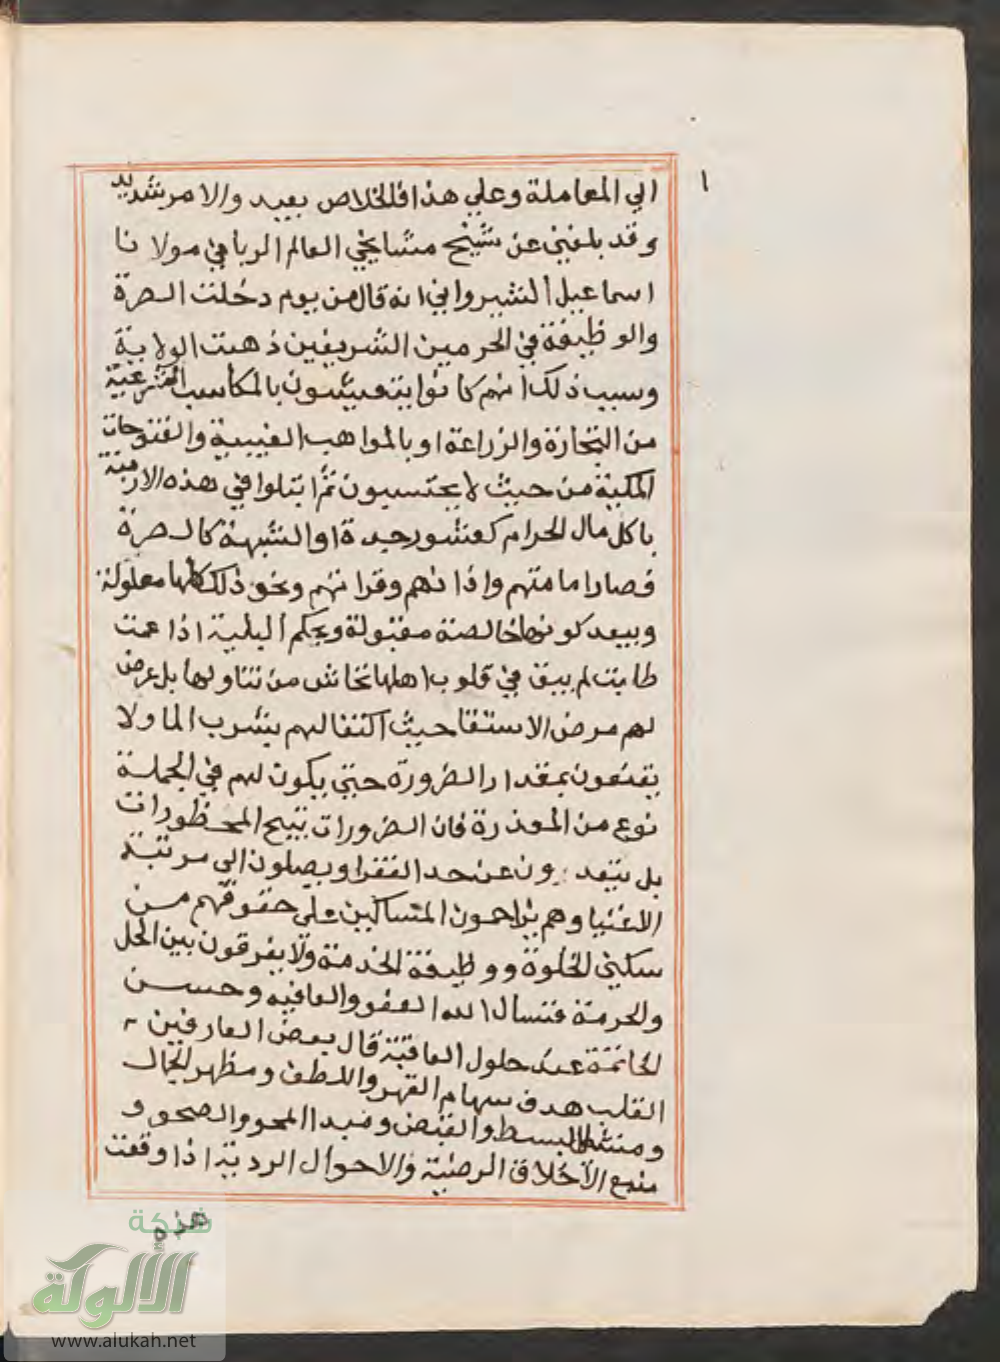 ١
الي المعاملة وعلي هذا فالخلاص بعيد والامر شديد
وقد بلغني عن شيخ مشايخي العالم الرباني مولانا
اسماعيل الشيرواني انه قال من يوم دخلت الصرة
والوظيفة في الحرمين الشريفين ذهبت الولاية
وسبب ذلك انهم كانوا يتعيشون بالمكاسب الشرعية
من التجارة والزراعة او بالمواهب الغيبية والفتوحات
المكية من حيث لا يحتسبون ثم ابتلوا في هذه الازمنة
باكل مال الحرام كعشور جدة او الشبهة كالصرة
فصار امامتهم واذانهم وقرانهم ونحو ذلك كلها معلولة
وبيعد كونها خالصة مقبولة وبحكم البلية اذا عمت
طابت لم يبق في قلوب اهلها تحاش من تناولها بل عرض
لهم مرض الاستقا حيث اكتفالهم بشرب الما ولا
يقنعون بمقدار الضرورة حتي يكون لهم في الجملة
نوع من المعذرة فان الضرورات تبيح المحظورات
بل يتعدون عن حد الفقرا ويصلون الى مرتبة
الاغنيا وهم يزاحمون المساكين على حقوقهم من
سكني الخلوة ووظيفة الخدمة ولا يفرقون بين الحل
والحرمة فنسال الله العفو والعافيه وحسن
الخاتمة عند حلول العاقبة قال بعض العارفين
القلب هدف سهام القهر واللطف ومظهر الجمال
ومنشا البسط والقبض ومبدا المحو والصحو و
منبع الاخلاق الرضية والاحوال الردية اذا وقعت
هذه
شبكة
الألوكة
www.alukah.net